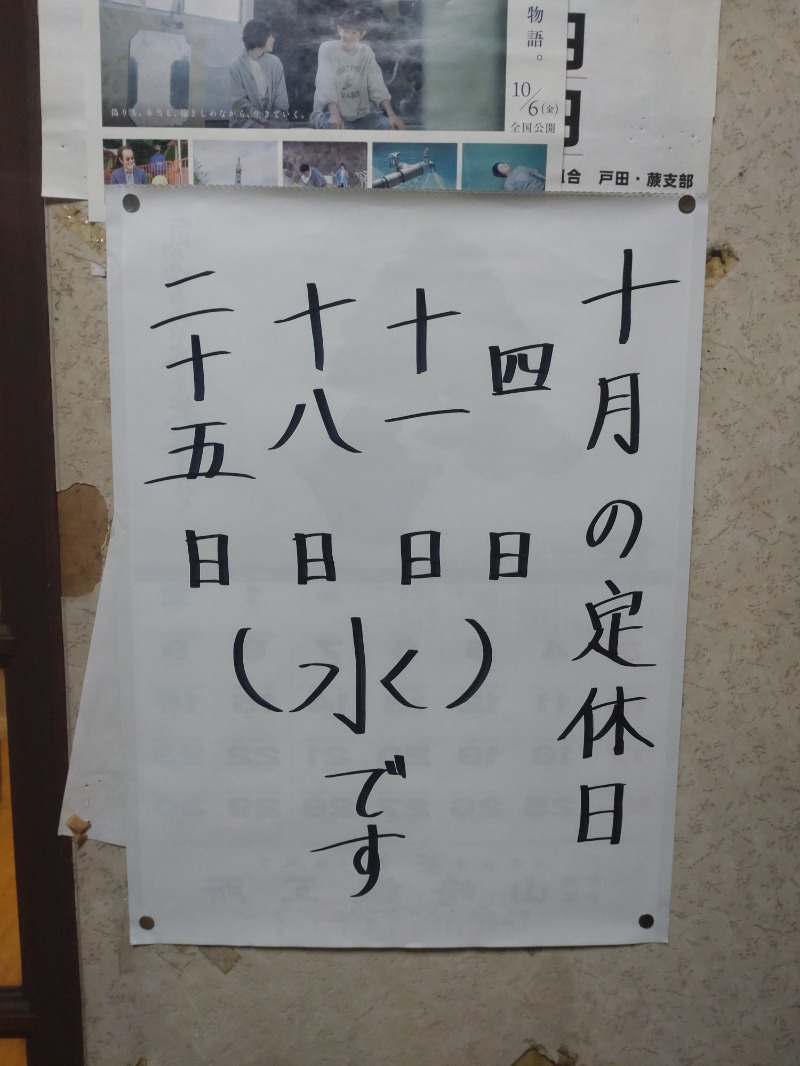 物語。
10/6(金)
全国公開
偽りも、本当も、抱きしめながら、生きていく。
組合 戸田・蕨支部
十月の定休日
四日
十一日
十八日
二十五日
(水)です